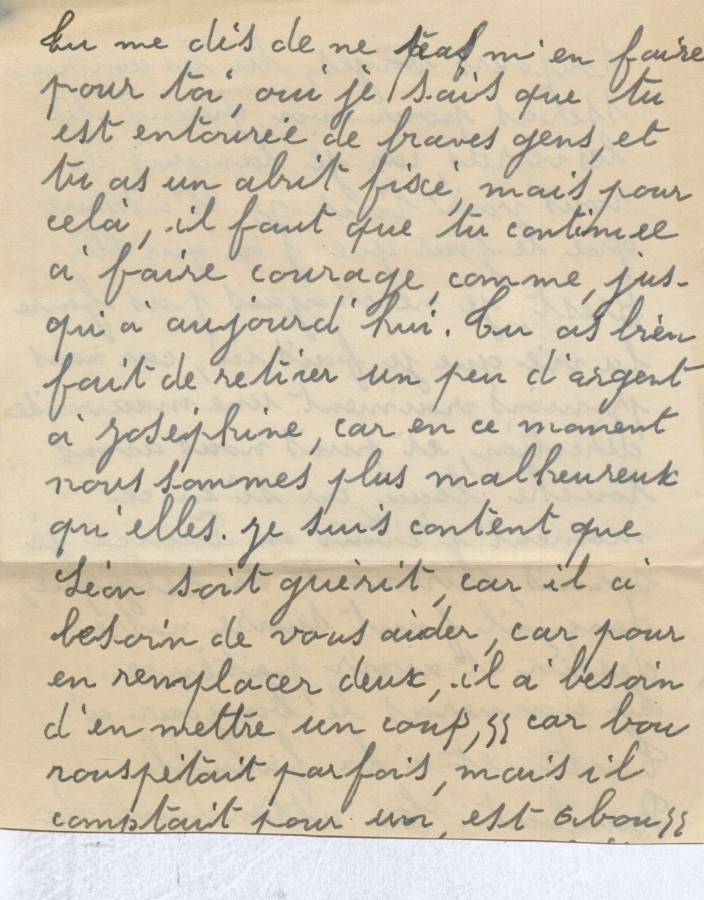 Tu me dis de ne pas m'en faire
pour toi, oui je sais que tu
est entouréé de braves gens, et
tu as un abrit fixé, mais pour
celà, il faut que tu continue
à faire courage, comme, jus-
qu'à aujourd'hui. Tu as bien
fait de retirer un peu d'argent
à Joséphine, car en ce moment
nous sommes plus malheureux
qu'elles. Je suis content que
Léon soit guérit, car il à
besoin de vous aider, car pour
en remplacer deux, il à besoin
d'en mettre un coup, car bou
rouspétait parfois, mais il
comptait pour un, est abou